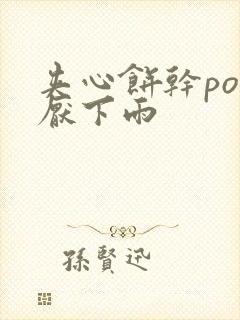 夾心餅幹po
厭下雨
孫賢迅